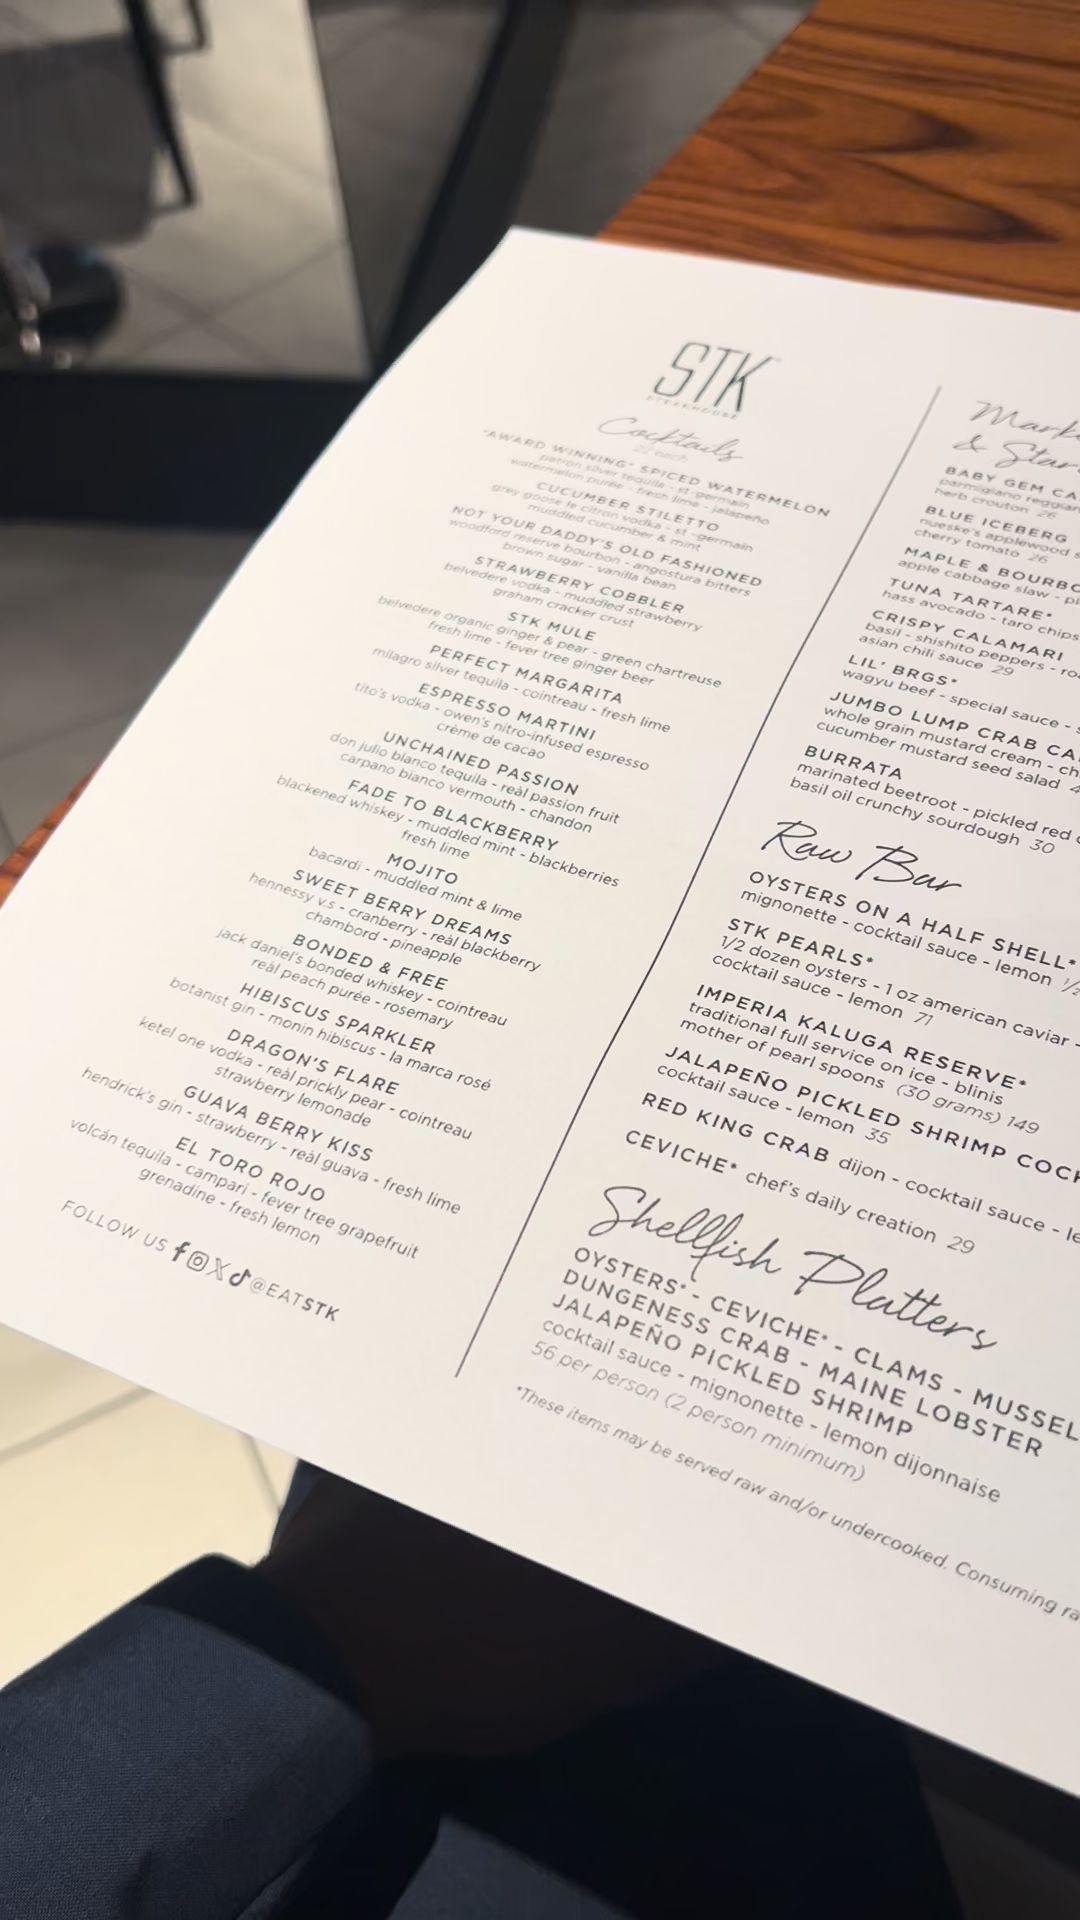 STK
STEAKHOUSE
Cocktails
"AWARD WINNING" SPICED WATERMELON
patrón silver tequila - st-germain
watermelon purée - fresh lime - jalapeño
CUCUMBER STILETTO
grey goose le citron vodka - st-germain
muddled cucumber & mint
NOT YOUR DADDY'S OLD FASHIONED
woodford reserve bourbon - angostura bitters
brown sugar - vanilla bean
STRAWBERRY COBBLER
belvedere vodka - muddled strawberry
graham cracker crust
STK MULE
belvedere organic ginger & pear - green chartreuse
fresh lime - fever tree ginger beer
PERFECT MARGARITA
milagro silver tequila - cointreau - fresh lime
ESPRESSO MARTINI
tito's vodka - owen's nitro-infused espresso
crème de cacao
UNCHAINED PASSION
don julio blanco tequila - reàl passion fruit
carpano bianco vermouth - chandon
FADE TO BLACKBERRY
blackened whiskey - muddled mint - blackberries
fresh lime
MOJITO
bacardi - muddled mint & lime
SWEET BERRY DREAMS
hennessy v.s - cranberry - reàl blackberry
chambord - pineapple
BONDED & FREE
jack daniel's bonded whiskey - cointreau
reàl peach purée - rosemary
HIBISCUS SPARKLER
botanist gin - monin hibiscus - la marca rosé
DRAGON'S FLARE
ketel one vodka - reàl prickly pear - cointreau
strawberry lemonade
GUAVA BERRY KISS
hendrick's gin - strawberry - reàl guava - fresh lime
EL TORO ROJO
volcán tequila - campari - fever tree grapefruit
grenadine - fresh lemon
FOLLOW US @EATSTK
&
BABY GEM
parmigiano
herb crouton 26
BLUE ICEBERG
nueske's applewood
cherry tomato 26
MAPLE &
apple cabbage slaw -
TUNA TARTARE*
hass avocado - taro chips
CRISPY CALAMARI
basil - shishito peppers -
asian chili sauce 29
LIL' BRGS*
wagyu beef - special sauce -
JUMBO LUMP CRAB
whole grain mustard cream -
cucumber mustard seed salad
BURRATA
marinated beetroot - pickled red
basil oil crunchy sourdough 30
Raw Bar
OYSTERS ON A HALF SHELL*
mignonette - cocktail sauce - lemon
STK PEARLS*
1/2 dozen oysters - 1 oz american caviar -
cocktail sauce - lemon 71
IMPERIA KALUGA RESERVE*
traditional full service on ice - blinis
mother of pearl spoons (30 grams) 149
JALAPEÑO PICKLED SHRIMP
cocktail sauce - lemon 35
RED KING CRAB dijon - cocktail sauce -
CEVICHE* chef's daily creation 29
Shellfish Platters
OYSTERS* - CEVICHE* - CLAMS -
DUNGENESS CRAB - MAINE LOBSTER
JALAPEÑO PICKLED SHRIMP
cocktail sauce - mignonette - lemon dijonnaise
56 per person (2 person minimum)
*These items may be served raw and/or undercooked. Consuming